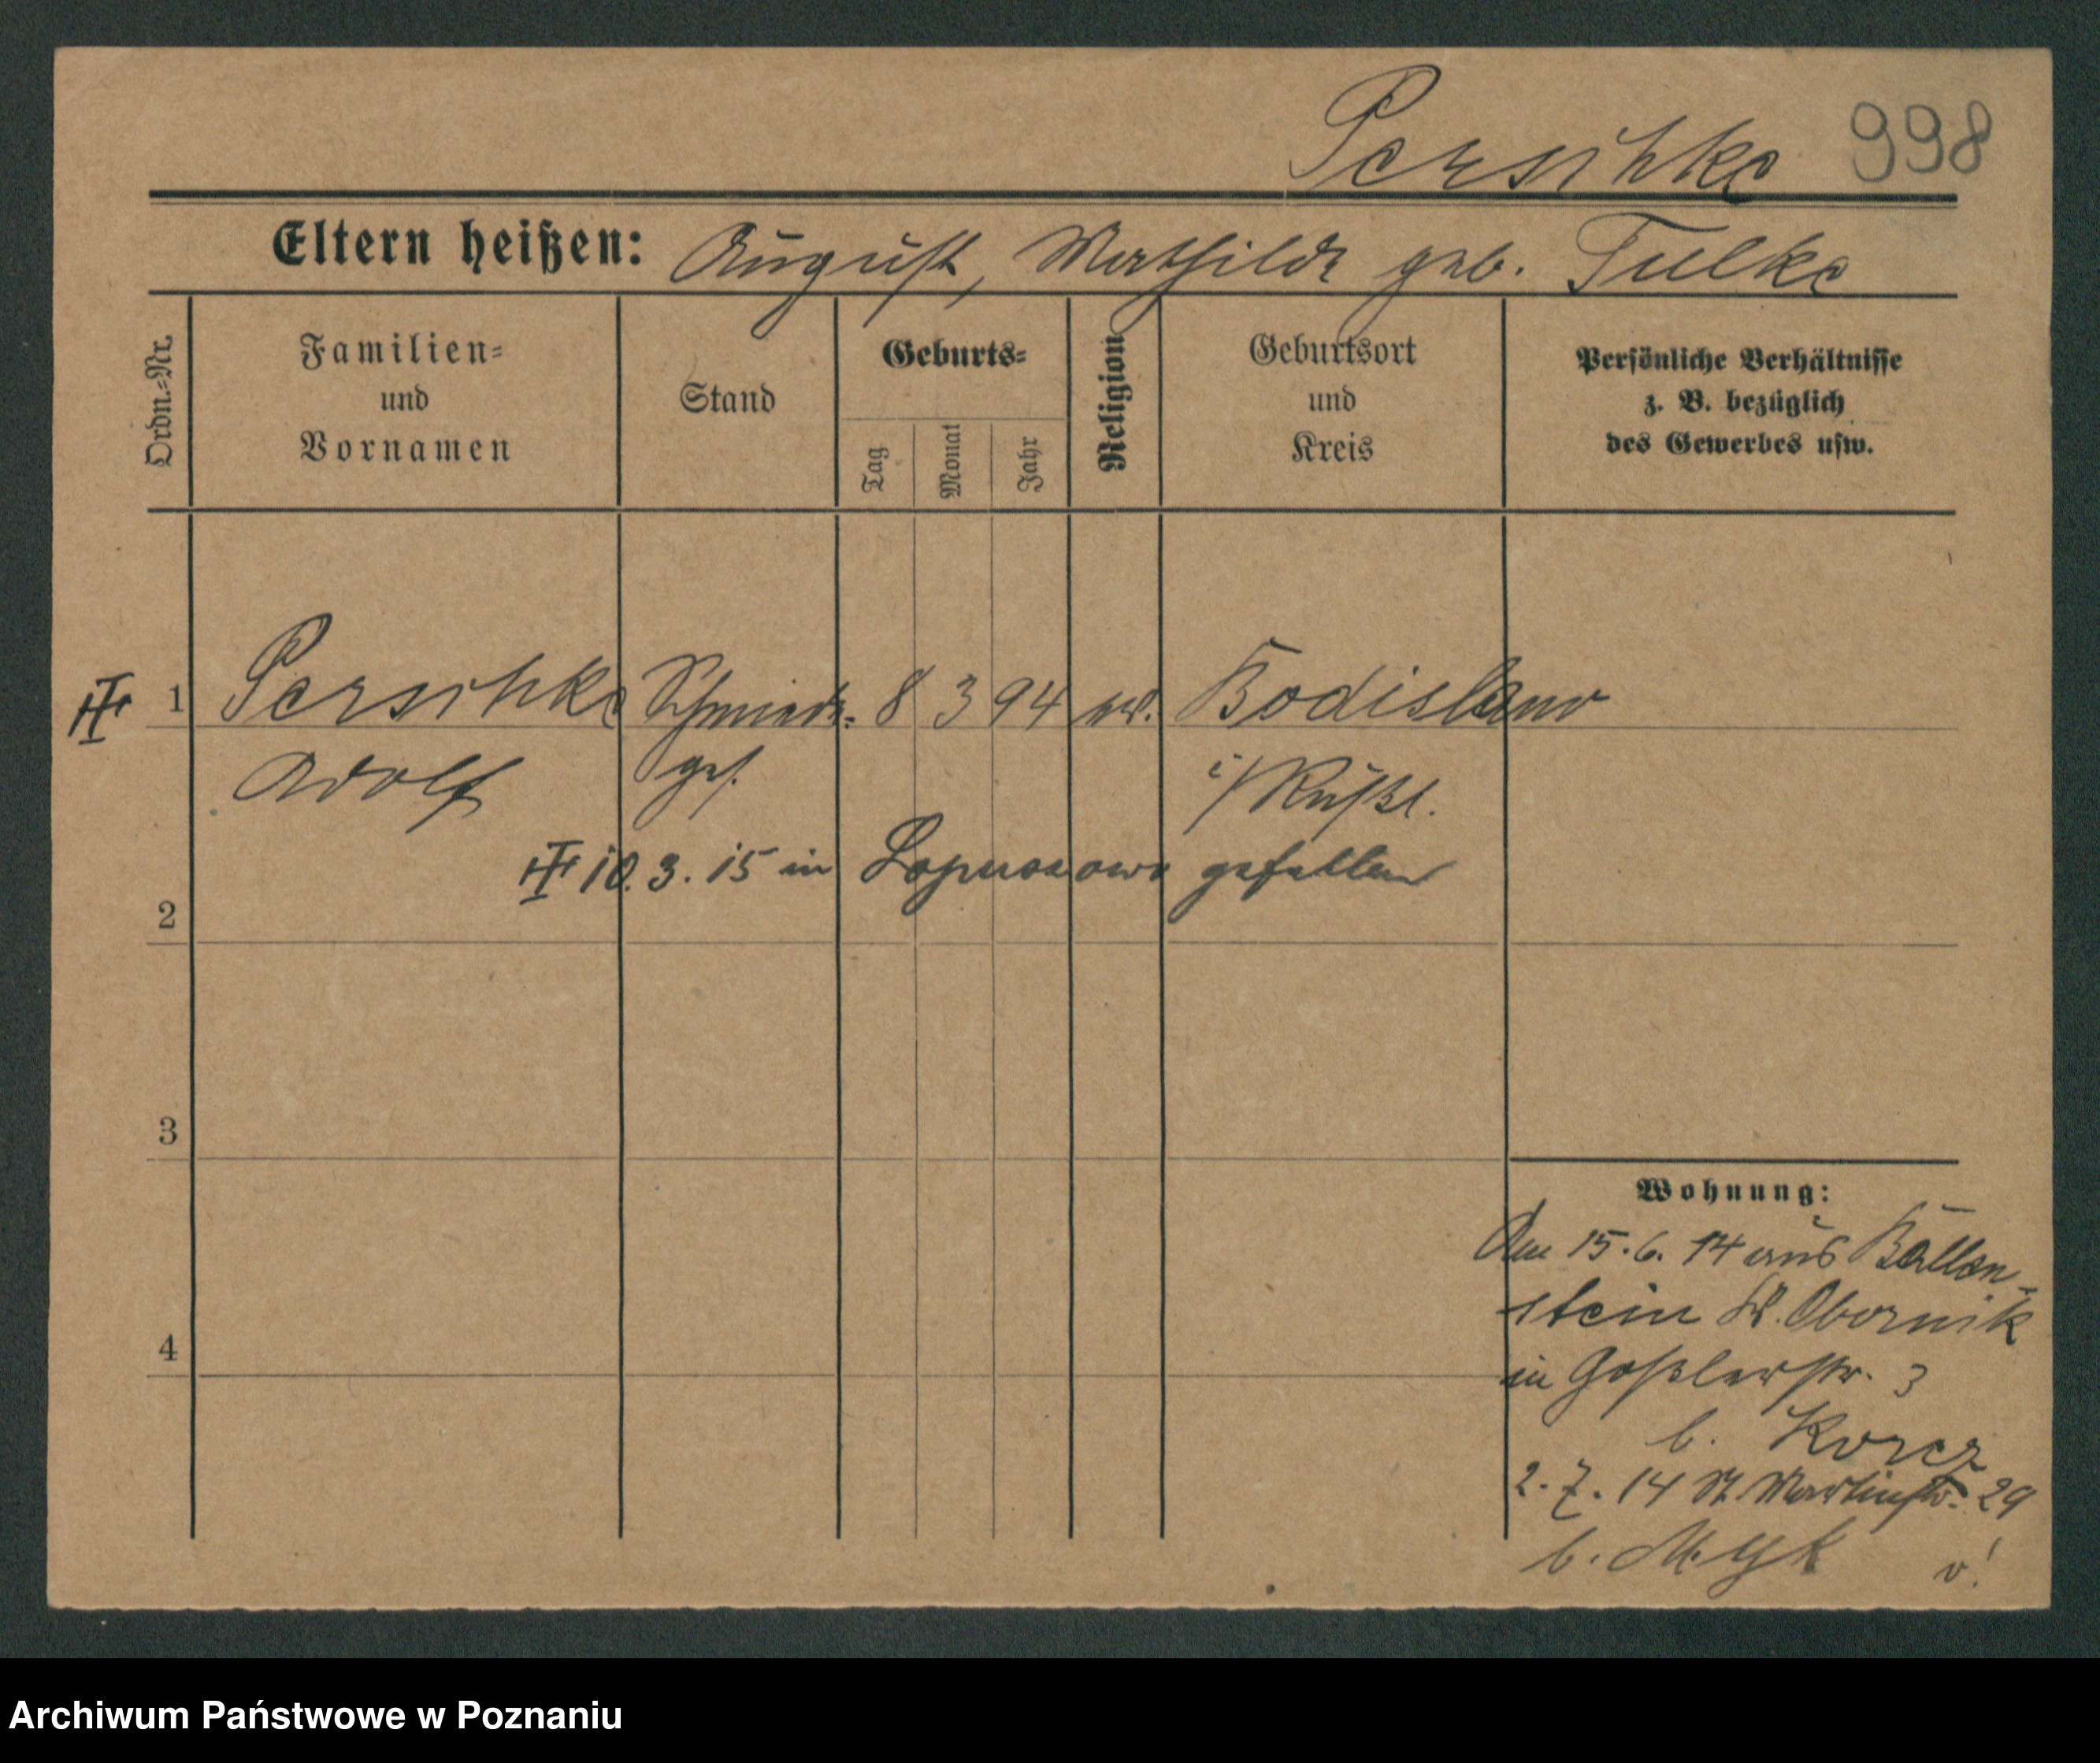 Perschke 998
Eltern heißen: August, Mathilde geb. Tulke
Ordn.=Nr.
Familien=
und
Vornamen
Stand
Geburts=
Tag
Monat
Jahr
Religion
Geburtsort
und
Kreis
Persönliche Verhältnisse
z. B. bezüglich
des Gewerbes usw.
1 Perschke Schmiede= 8 3 94 ev. Bodislaw
Adolf ges. i/Rußl.
10.3.15 in gefallen
2
3
4
Wohnung:
Am 15.6.14 aus Ballen-
stein Kr. Obornik
in Goßlerstr. 3
b. Korcz
2.7.14 St. Martinstr. 29
b. Myk v!
Archiwum Państwowe w Poznaniu